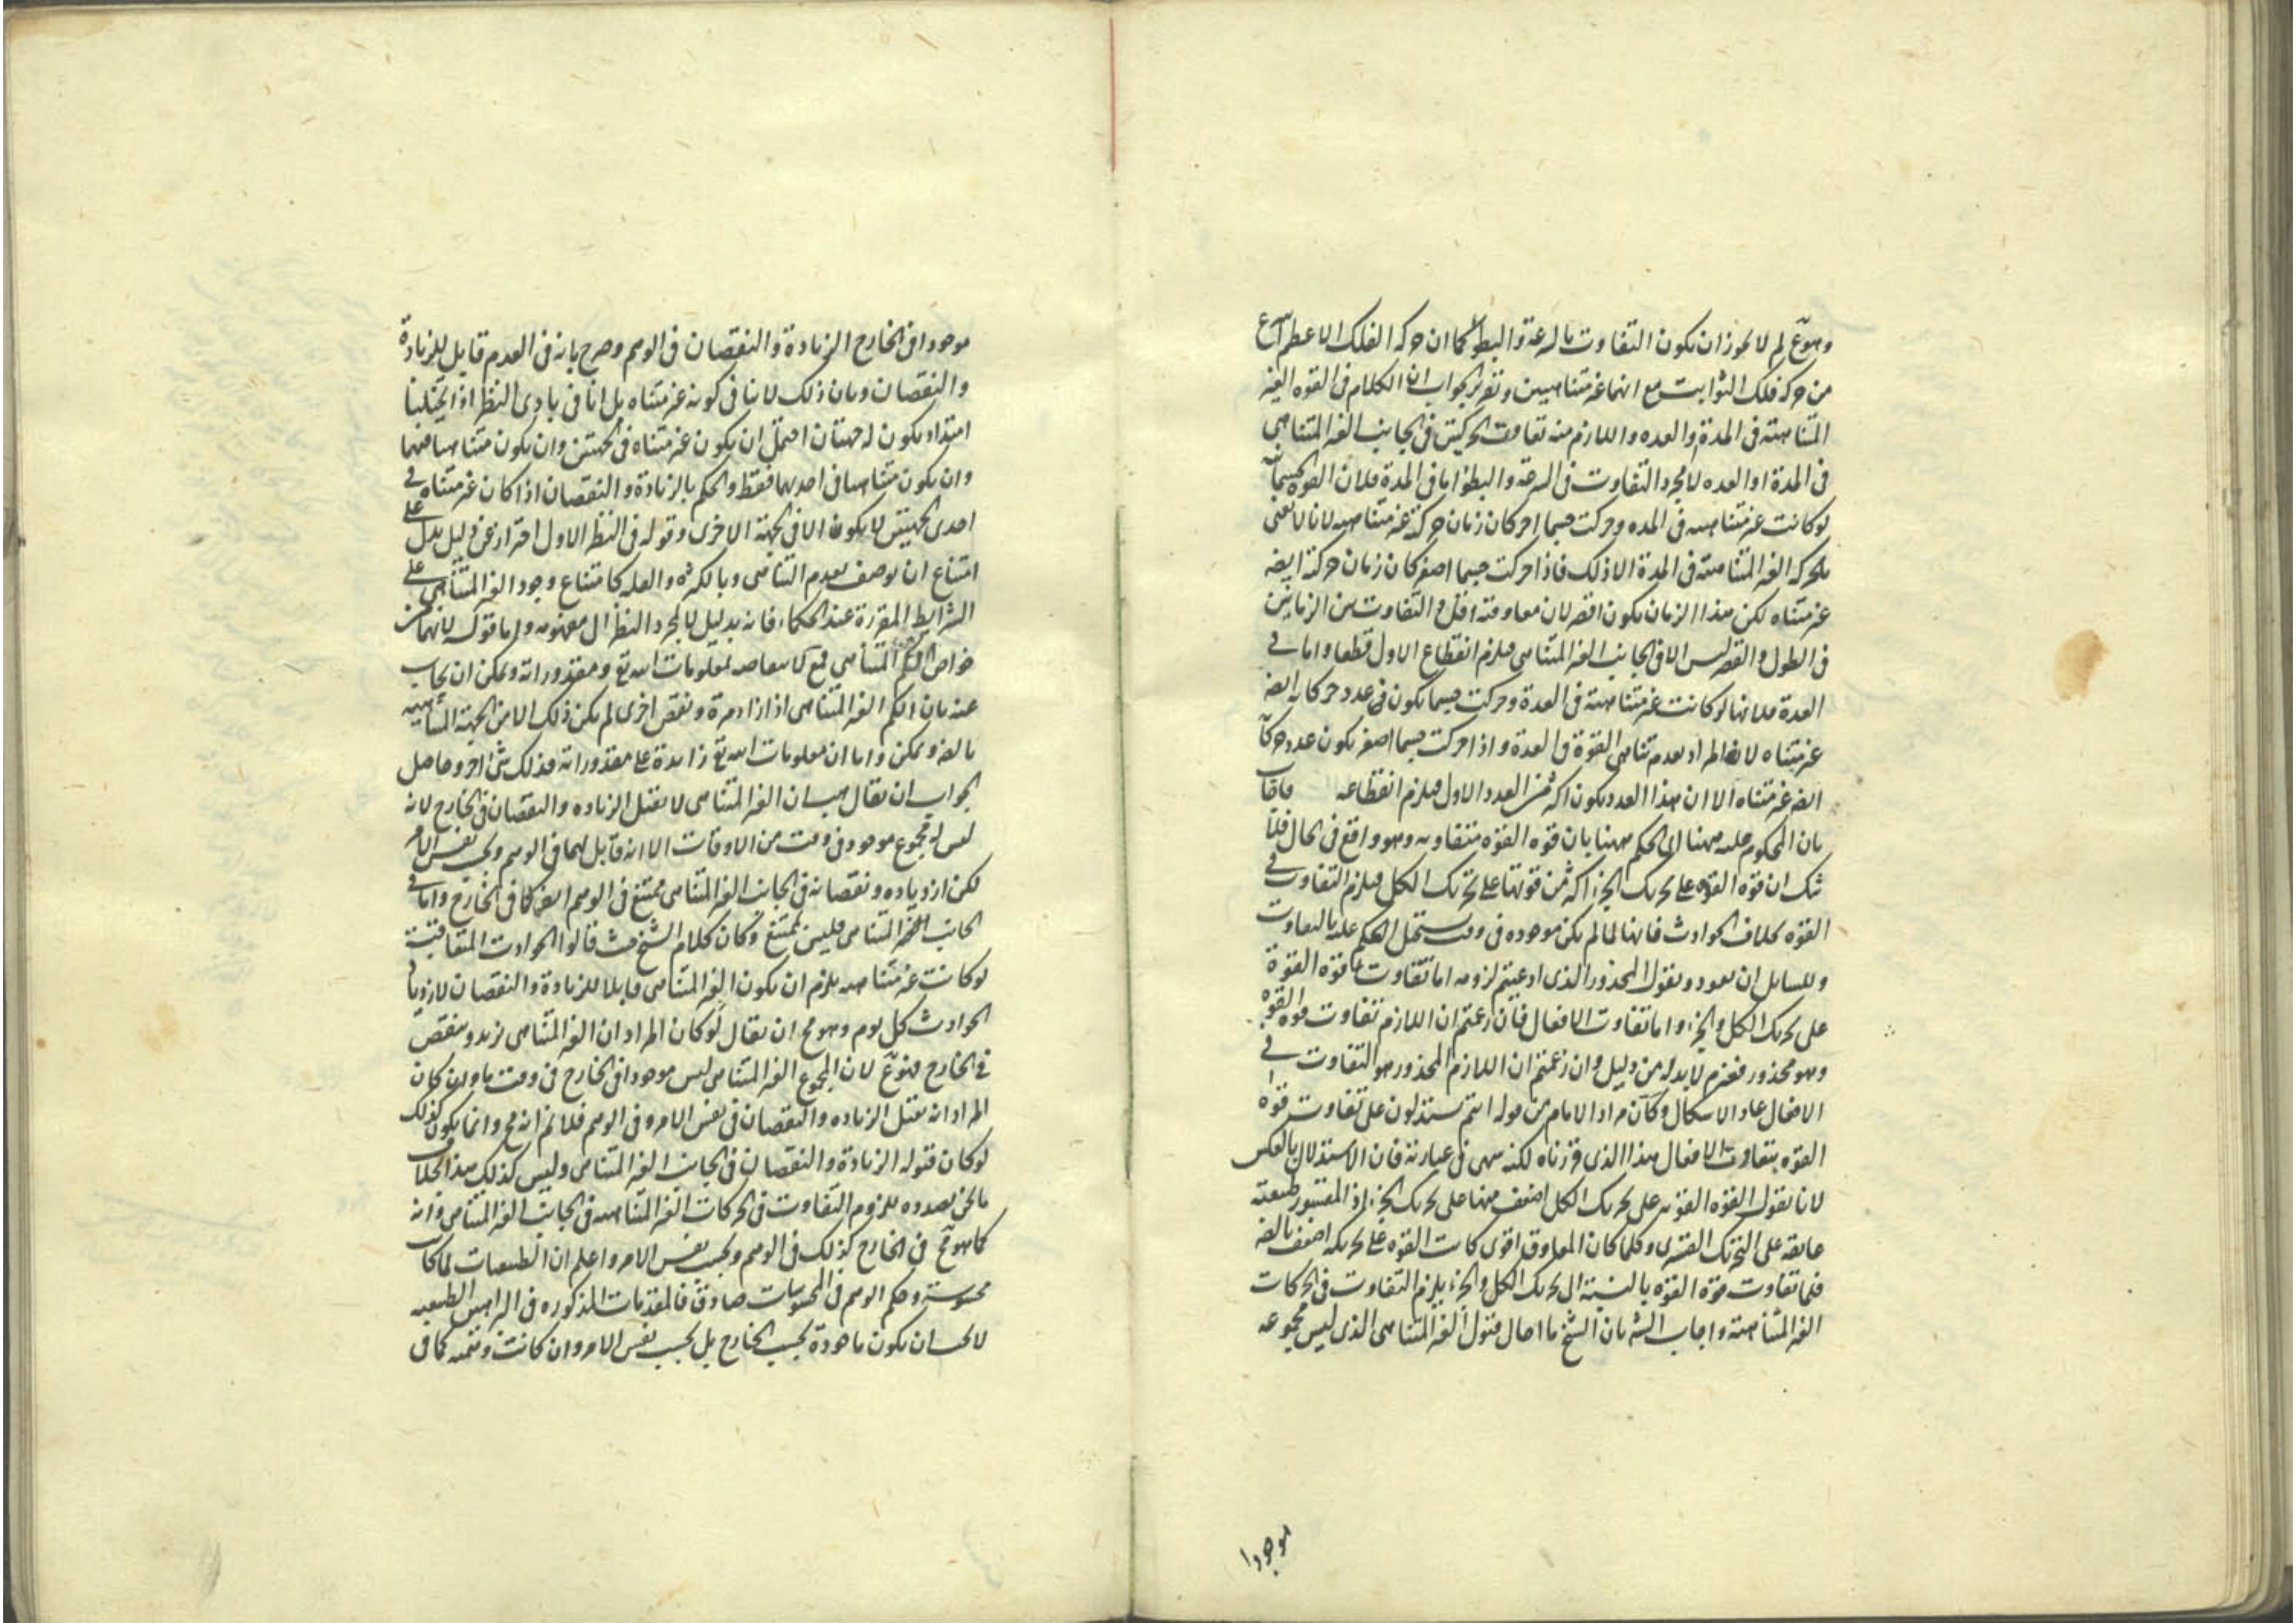 وهو مع لم لا يجوز ان يكون التفاوت بالسرعة والبطؤ كما ان حركة الفلك الاعظم اسرع
من حركة فلك الثوابت مع انهما غير متناهيين وتقرير الجواب ان الكلام في القوه الغير
المتناهية في المدة والعده واللازم منه تفاوت الحركتين في الجانب الغير المتناهي
في المدة او العده لا مجرد التفاوت في السرعة والبطؤ اما في المدة فلان القوه الجسمانية
لو كانت غير متناهيه في المده وحركت جسما اخر كان زمان حركته غير متناهيه لانا لا نعنى
بالحركه الغير المتناهية في المدة الا ذلك فاذا حركت جسما اصغر كان زمان حركته ايضه
غير متناه لكن هذا الزمان يكون اقصر لان معاوقته اقل والتفاوت بين الزمانين
في الطول والقصر ليس الا في الجانب الغير المتناهى فيلزم انقطاع الاول قطعا واما في
العدة فلانها لو كانت غير متناهية في العدة وحركت جسما يكون في عدد حركاته ايضه
غير متناه لانه المراد بعدم تناهى القوة في العدة واذا حركت جسما اصغر يكون عدد حركا
ايضه غير متناه الا ان هذا العدد يكون اكثر من العدد الاول فيلزم انقطاعه فاقا
بان المحكوم عليه ههنا اى الحكم ههنا بان قوه القوه متفاوته وهو واقع في الحال فلا
شك ان قوه القوه على تحريك الجزء اكثر من قوتها على تحريك الكل فيلزم التفاوت في
القوه بخلاف الحوادث فانها لما لم يكن موجوده في وقت يستحيل الحكم عليه بالتفاوت
وللسايل ان يعود ويقول المحذور الذى ادعيتم لزومه اما تفاوت قوه القوة
على تحريك الكل والجزء واما تفاوت الافعال فان زعمتم ان اللازم تفاوت قوه القوه
وهو محذور فغيرم لا بد له من دليل وان زعمتم ان اللازم المحذور هو التفاوت في
الافعال عاد الاشكال وكان مراد الامام من قوله انتم تستدلون على تفاوت قوه
القوه بتفاوت الافعال هذا الذى قررناه لكنه سهى في عبارته فان الاستدلال بالعكس
لانا نقول القوه القويه على تحريك الكل اضعف منها على تحريك الجزء اذ المقسور طبيعته
عايقه على التحريك القسرى وكلما كان المعاوق اقوى كانت القوه على تحريكه اضعف بالضر
فلما تفاوت قوة القوه بالنسبة الى تحريك الكل والجزء يلزم التفاوت في الحركات
الغير المتناهية واجاب الشه بان الشيخ ما احال قبول الغير المتناهى الذى ليس مجموعه
موجودا
موجودا في الخارج الزيادة والنقصان في الوهم وصرح بانه في العدم قابل للزيادة
والنقصان وبان ذلك لا ينافى كونه غير متناه بل انا في بادى النظر اذا تخيلنا
امتداد يكون له جهتان احتمل ان يكون غير متناه في الجهتين وان يكون متناهيا فيهما
وان يكون متناهيا في احديهما فقط والحكم بالزيادة والنقصان اذا كان غير متناه في
احدى الجهتين لا يكون الا في الجهة الاخرى وقوله في النظر الاول احتراز عن دليل يدل على
امتناع ان يوصف بعدم التناهى وبالكثره والقله كامتناع وجود الغير المتناهى على
الشرايط المقررة عند الحكماء فانه بدليل لا بمجرد النظر الى مفهومه واما قوله لانهما من
خواص الكم المتناهى فمع كا معاصه بمعلومات الله تع ومقدوراته ويمكن ان يجاب
عنه بان الكم الغير المتناهى اذا زاد مرة ونقص اخرى لم يكن ذلك الا من الجهة المتناهيه
بالضر ويمكن واما ان معلومات الله تع زايدة على مقدوراته فذلك شى اخر وحاصل
الجواب ان يقال هب ان الغير المتناهى لا يقبل الزياده والنقصان في الخارج لانه
ليس له مجموع موجود في وقت من الاوقات الا انه قابل لهما في الوهم وبحسب نفس الامر
لكن ازدياده ونقصانه في الجانب الغير المتناهى ممتنع في الوهم ايضه كما في الخارج واما في
الجانب المتناهى فليس بممتنع وكان كلام الشيخ حيث قالوا الحوادث المتعاقبة
لو كانت غير متناهيه يلزم ان يكون الغير المتناهى قابلا للزيادة والنقصان لازديا
الحوادث كل يوم وهو مح ان يقال لو كان المراد ان الغير المتناهى يزيد وينقص
في الخارج فهو مع لان المجموع الغير المتناهى ليس موجودا في الخارج في وقت ما وان كان
المراد انه يقبل الزياده والنقصان في نفس الامر وفى الوهم فلا نم انه مح وانما يكون كذلك
لو كان قبوله الزيادة والنقصان في الجانب الغير المتناهى وليس كذلك هذا بخلاف
ما نحن بصدده للزوم التفاوت في الحركات الغير المتناهيه في الجانب الغير المتناهى وانه
كما هو مح في الخارج كذلك في الوهم وبحسب نفس الامر واعلم ان الطبيعيات لما كا
محسوسة وحكم الوهم في المحسوسات صادق فالمقدمات المذكوره في البراهين الطبيعيه
لا يجب ان يكون ماخوذة بحسب الخارج بل بحسب نفس الامر وان كانت وهمية كما في